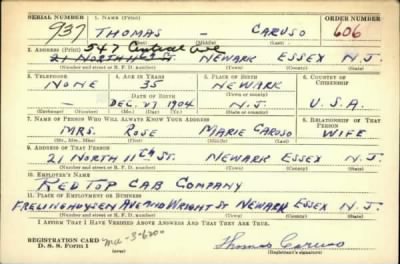 SERIAL NUMBER 1. NAME (Print) ORDER NUMBER
937 THOMAS - CARUSO 606
(First) (Middle) (Last)
2. ADDRESS (Print) 547 Central Ave
21 NORTH 11th ST NEWARK ESSEX N.J.
(Number and street or R. F. D. number) (Town) (County) (State)
3. TELEPHONE 4. AGE IN YEARS 5. PLACE OF BIRTH 6. COUNTRY OF CITIZENSHIP
NONE 35 NEWARK
(Town or county)
DATE OF BIRTH
DEC. 27 1904 N.J. U.S.A.
(Exchange) (Number) (Mo.) (Day) (Yr.) (State or country)
7. NAME OF PERSON WHO WILL ALWAYS KNOW YOUR ADDRESS 8. RELATIONSHIP OF THAT PERSON
MRS. ROSE MARIE CARUSO WIFE
(Mr., Mrs., Miss) (First) (Middle) (Last)
9. ADDRESS OF THAT PERSON
21 NORTH 11th ST. NEWARK ESSEX N.J.
(Number and street or R. F. D. number) (Town) (County) (State)
10. EMPLOYER'S NAME
RED TOP CAB COMPANY
11. PLACE OF EMPLOYMENT OR BUSINESS
FRELINGHUYSEN AVE AND WRIGHT ST NEWARK ESSEX N.J.
(Number and street or R. F. D. number) (Town) (County) (State)
I AFFIRM THAT I HAVE VERIFIED ABOVE ANSWERS AND THAT THEY ARE TRUE.
REGISTRATION CARD
D. S. S. Form 1 Thomas Caruso
(Registrant's signature)